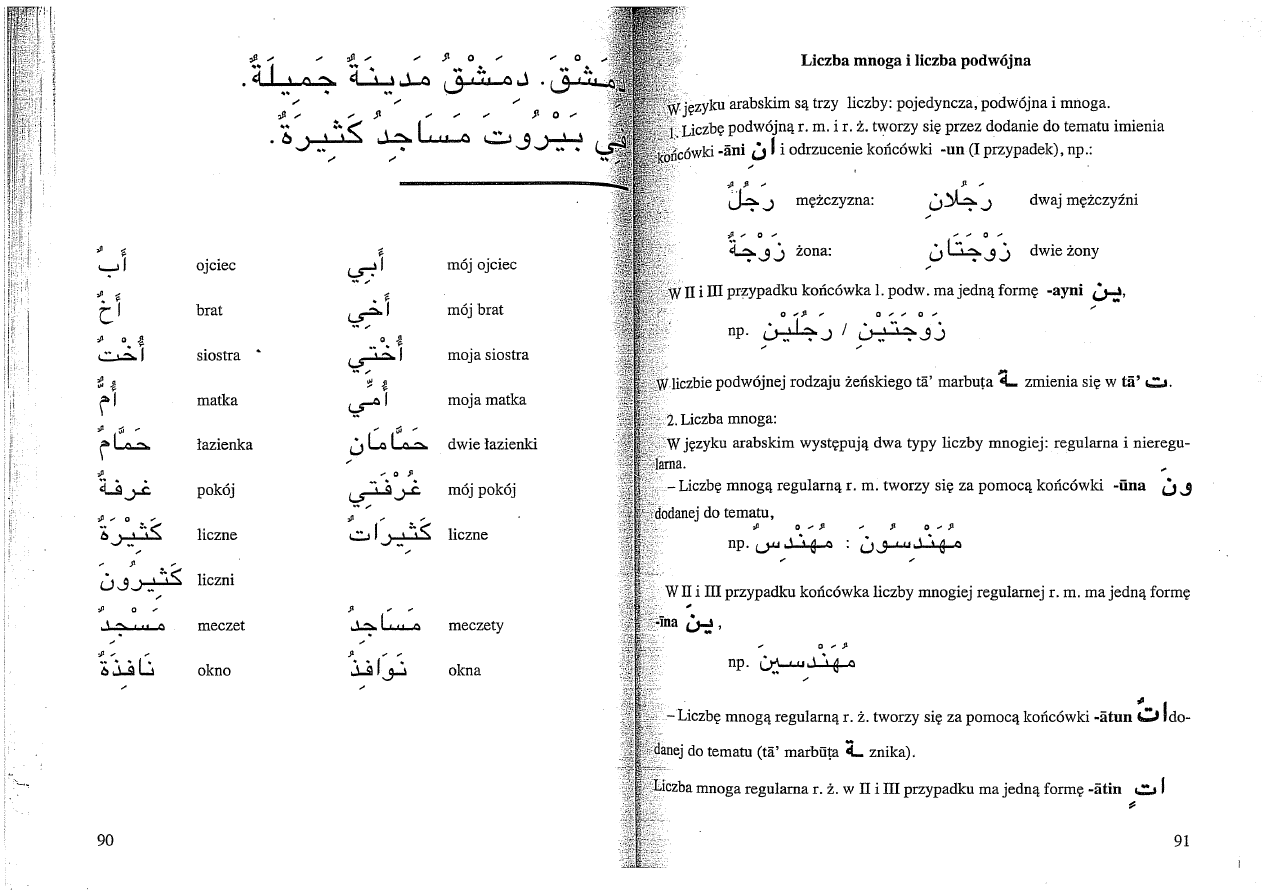 دِمَشْقَ. دِمَشْقُ مَدِينَةٌ جَمِيلَةٌ.
بَيْرُوتَ مَسَاجِدُ كَثِيرَةٌ.
أَبٌ ojciec أَبِي mój ojciec
أَخٌ brat أَخِي mój brat
أُخْتٌ siostra أُخْتِي moja siostra
أُمٌّ matka أُمِّي moja matka
حَمَّامٌ łazienka حَمَّامَانِ dwie łazienki
غُرْفَةٌ pokój غُرْفَتِي mój pokój
كَثِيْرَةٌ liczne كَثِيرَاتٌ liczne
كَثِيرُونَ liczni
مَسْجِدٌ meczet مَسَاجِدُ meczety
نَافِذَةٌ okno نَوَافِذُ okna
90
Liczba mnoga i liczba podwójna
W języku arabskim są trzy liczby: pojedyncza, podwójna i mnoga.
1. Liczbę podwójną r. m. i r. ż. tworzy się przez dodanie do tematu imienia
końcówki -āni انِ i odrzucenie końcówki -un (I przypadek), np.:
رَجُلٌ mężczyzna: رَجُلانِ dwaj mężczyźni
زَوْجَةٌ żona: زَوْجَتَانِ dwie żony
W II i III przypadku końcówka l. podw. ma jedną formę -ayni ـينِ,
np. زَوْجَتَيْنِ / رَجُلَيْنِ
W liczbie podwójnej rodzaju żeńskiego tā’ marbuṭa ـة zmienia się w tā’ ت.
2. Liczba mnoga:
W języku arabskim występują dwa typy liczby mnogiej: regularna i nieregu-
larna.
– Liczbę mnogą regularną r. m. tworzy się za pomocą końcówki -ūna ونَ
dodanej do tematu,
np. مُهَنْدِسُونَ : مُهَنْدِسٌ
W II i III przypadku końcówka liczby mnogiej regularnej r. m. ma jedną formę
-īna ـينَ,
np. مُهَنْدِسِينَ
– Liczbę mnogą regularną r. ż. tworzy się za pomocą końcówki -ātun اتٌ do-
danej do tematu (tā’ marbūṭa ـة znika).
Liczba mnoga regularna r. ż. w II i III przypadku ma jedną formę -ātin اتٍ
91